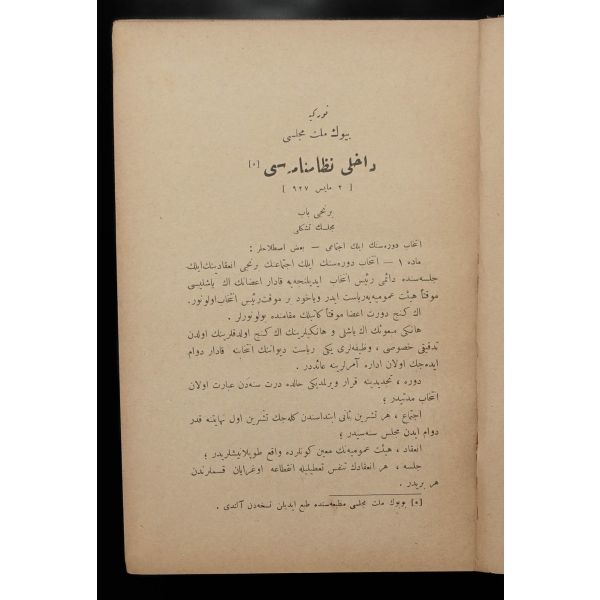 توركیه
بیوك ملت مجلسی
داخلی نظامنامه‌سی [٭]
[ ٢ مایس ٩٢٧ ]
برنجی باب
مجلسك تشكلی
انتخاب دوره‌سنك ایلك اجتماعی — بعض اصطلاحلر :
ماده ١ — انتخاب دوره‌سنك ایلك اجتماعنك برنجی انعقادینك ایلك
جلسه‌سنده دائمی رئیس انتخاب ایدیلنجه‌یه قادار اعضانك اك یاشلیسی
موقتاً هیئت عمومیه‌یه ریاست ایدر ویاخود بر موقت رئیس انتخاب اولونور.
اك كنج درت اعضا موقتاً كاتبلك مقامنده بولونورلر .
هانكی مبعوثك اك یاشلی و هانكیلرینك اك كنج اولدقلرینك اولدن
تدقیقی خصوصی ، وظیفه‌لری یكی ریاست دیوانینك انتخابنه قادار دوام
ایده‌جك اولان اداره آمرلرینه عائددر .
دوره ، تجدیدینه قرار ویرلمدیكی حالده درت سنه‌دن عبارت اولان
انتخاب مدتیدر ؛
اجتماع ، هر تشرین ثانی ابتداسندن كله‌جك تشرین اول نهایتنه قدر
دوام ایدن مجلس سنه‌سیدر ؛
انعقاد ، هیئت عمومیه‌نك معین كونلرده واقع طوپلانیشلریدر ؛
جلسه ، هر انعقادك تنفس تعطیلیله انقطاعه اوغرایان قسملرندن
هر بریدر .
[٭] بویوك ملت مجلسی مطبعه‌سنده طبع ایدیلن نسخه‌دن آلندی .